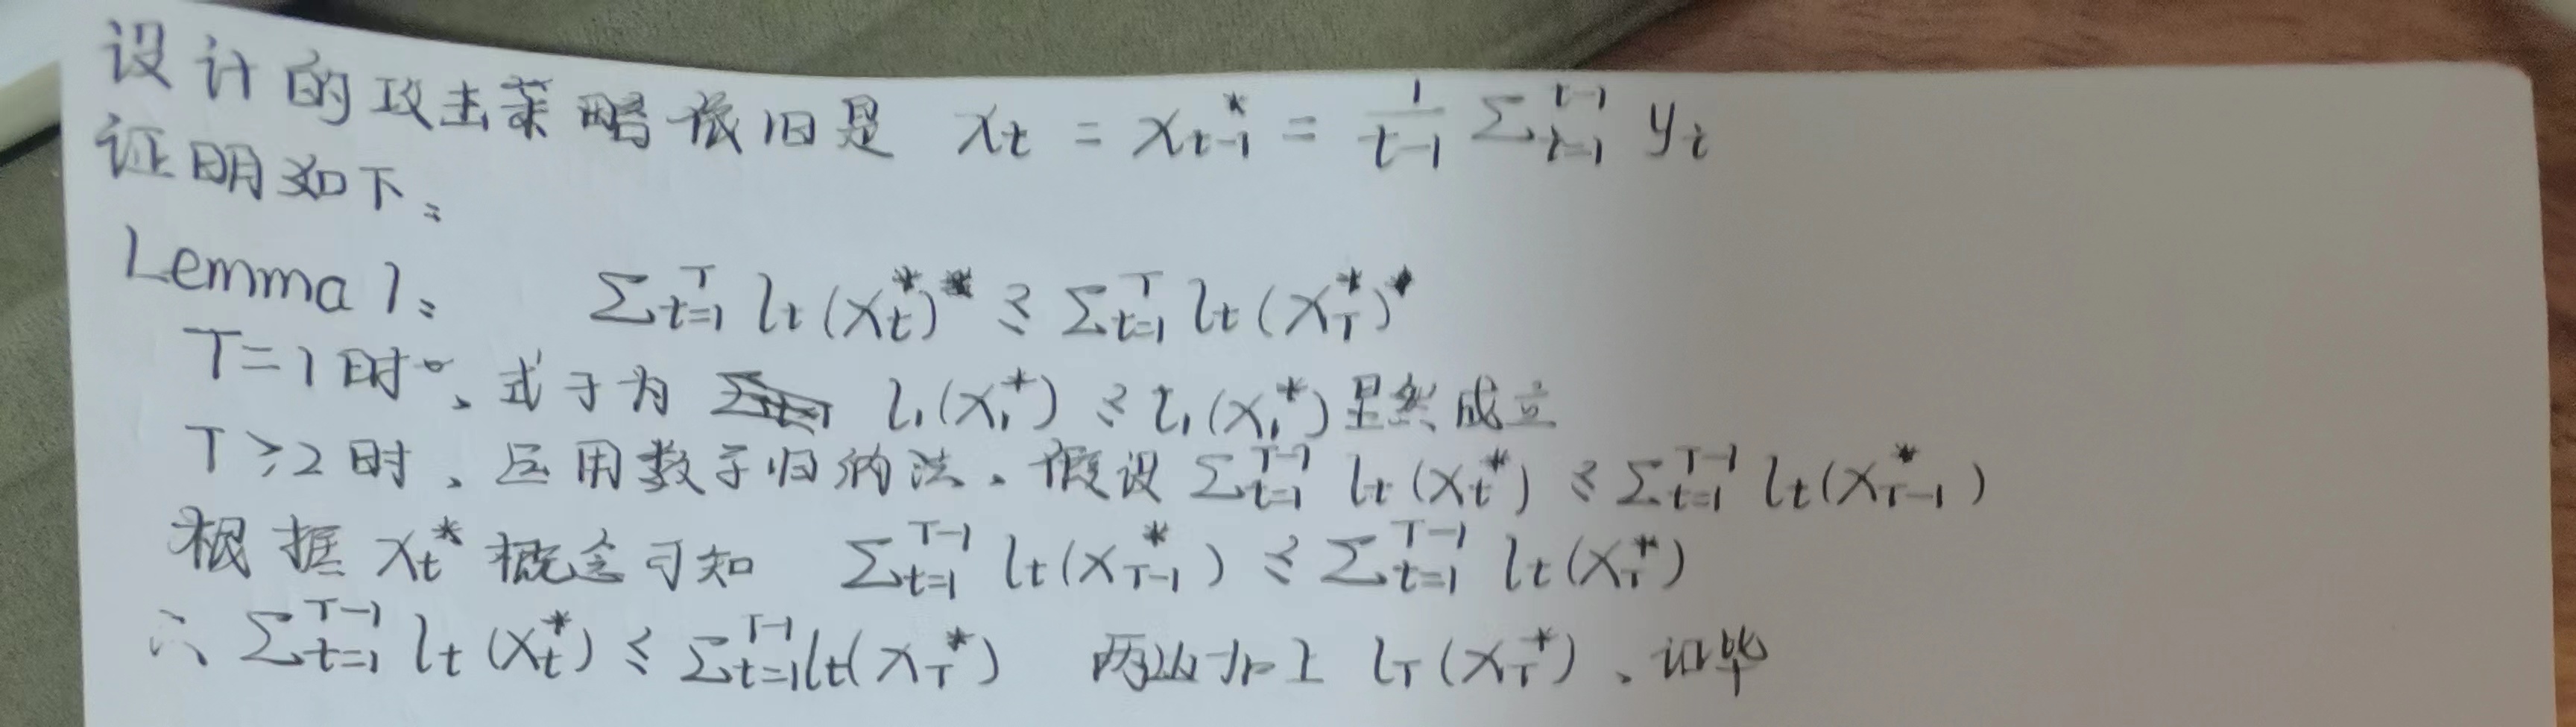 设计的攻击策略依旧是 x_t = x_{t-1}^* = \frac{1}{t-1} Σ_{i=1}^{t-1} y_i
证明如下:
Lemma 1: Σ_{t=1}^{T} l_t(x_t^*) ≤ Σ_{t=1}^{T} l_t(x_T^*)
T=1时、式子为 l_1(x_1^*) ≤ l_1(x_1^*) 显然成立
T≥2时、运用数学归纳法、假设 Σ_{t=1}^{T-1} l_t(x_t^*) ≤ Σ_{t=1}^{T-1} l_t(x_{T-1}^*)
根据 x_t^* 概念可知 Σ_{t=1}^{T-1} l_t(x_{T-1}^*) ≤ Σ_{t=1}^{T-1} l_t(x_T^*)
∴ Σ_{t=1}^{T-1} l_t(x_t^*) ≤ Σ_{t=1}^{T-1} l_t(x_T^*) 两边加上 l_T(x_T^*)、证毕